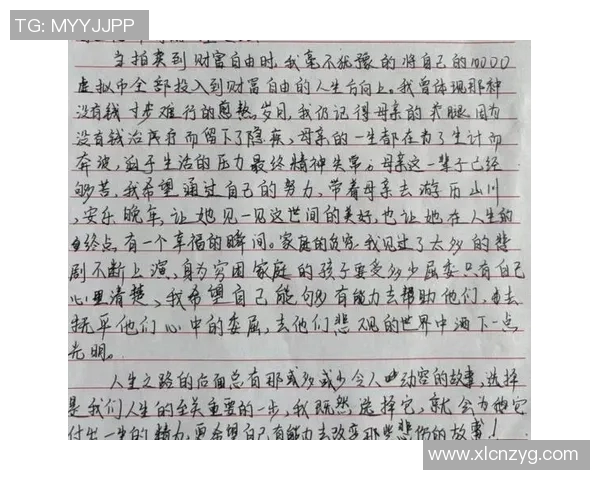 TG: MYYJJPP
当拍卖到财富自由时,我毫不犹豫的将自己的10000
虚拟币全部投入到财富自由的人生方向上。我曾体现那种
没有钱寸步难行的煎熬岁月,我仍记得母亲的 腿因为
没有钱治疗而留下了隐疾、母亲的一生都在为了生计而
奔波,迫于生活的压力最终精神失常。母亲这一辈子已经
够苦,我希望通过自己的努力,带着母亲去游历山川
,安乐晚年,让她见一见这世间的美好,也让她在人生的
终点有一个幸福的瞬间。家庭的贫穷,我见过了太多的悲
剧不断上演,身为穷困家庭的孩子要受多少屈委只有自己
心里清楚、我希望自己能够有能力去帮助他们,去
抚平他们心中的委屈,去他们悲观的世界中洒下一点
光明。
人生之路的后面总有那或多或少令人动容的故事,选择
是我们人生的至关重要的一步,我既然选择它,就会为她
付出一生的精力,更希望自己有能力去改变那些悲伤的故事!
www.xlcnzyg.com